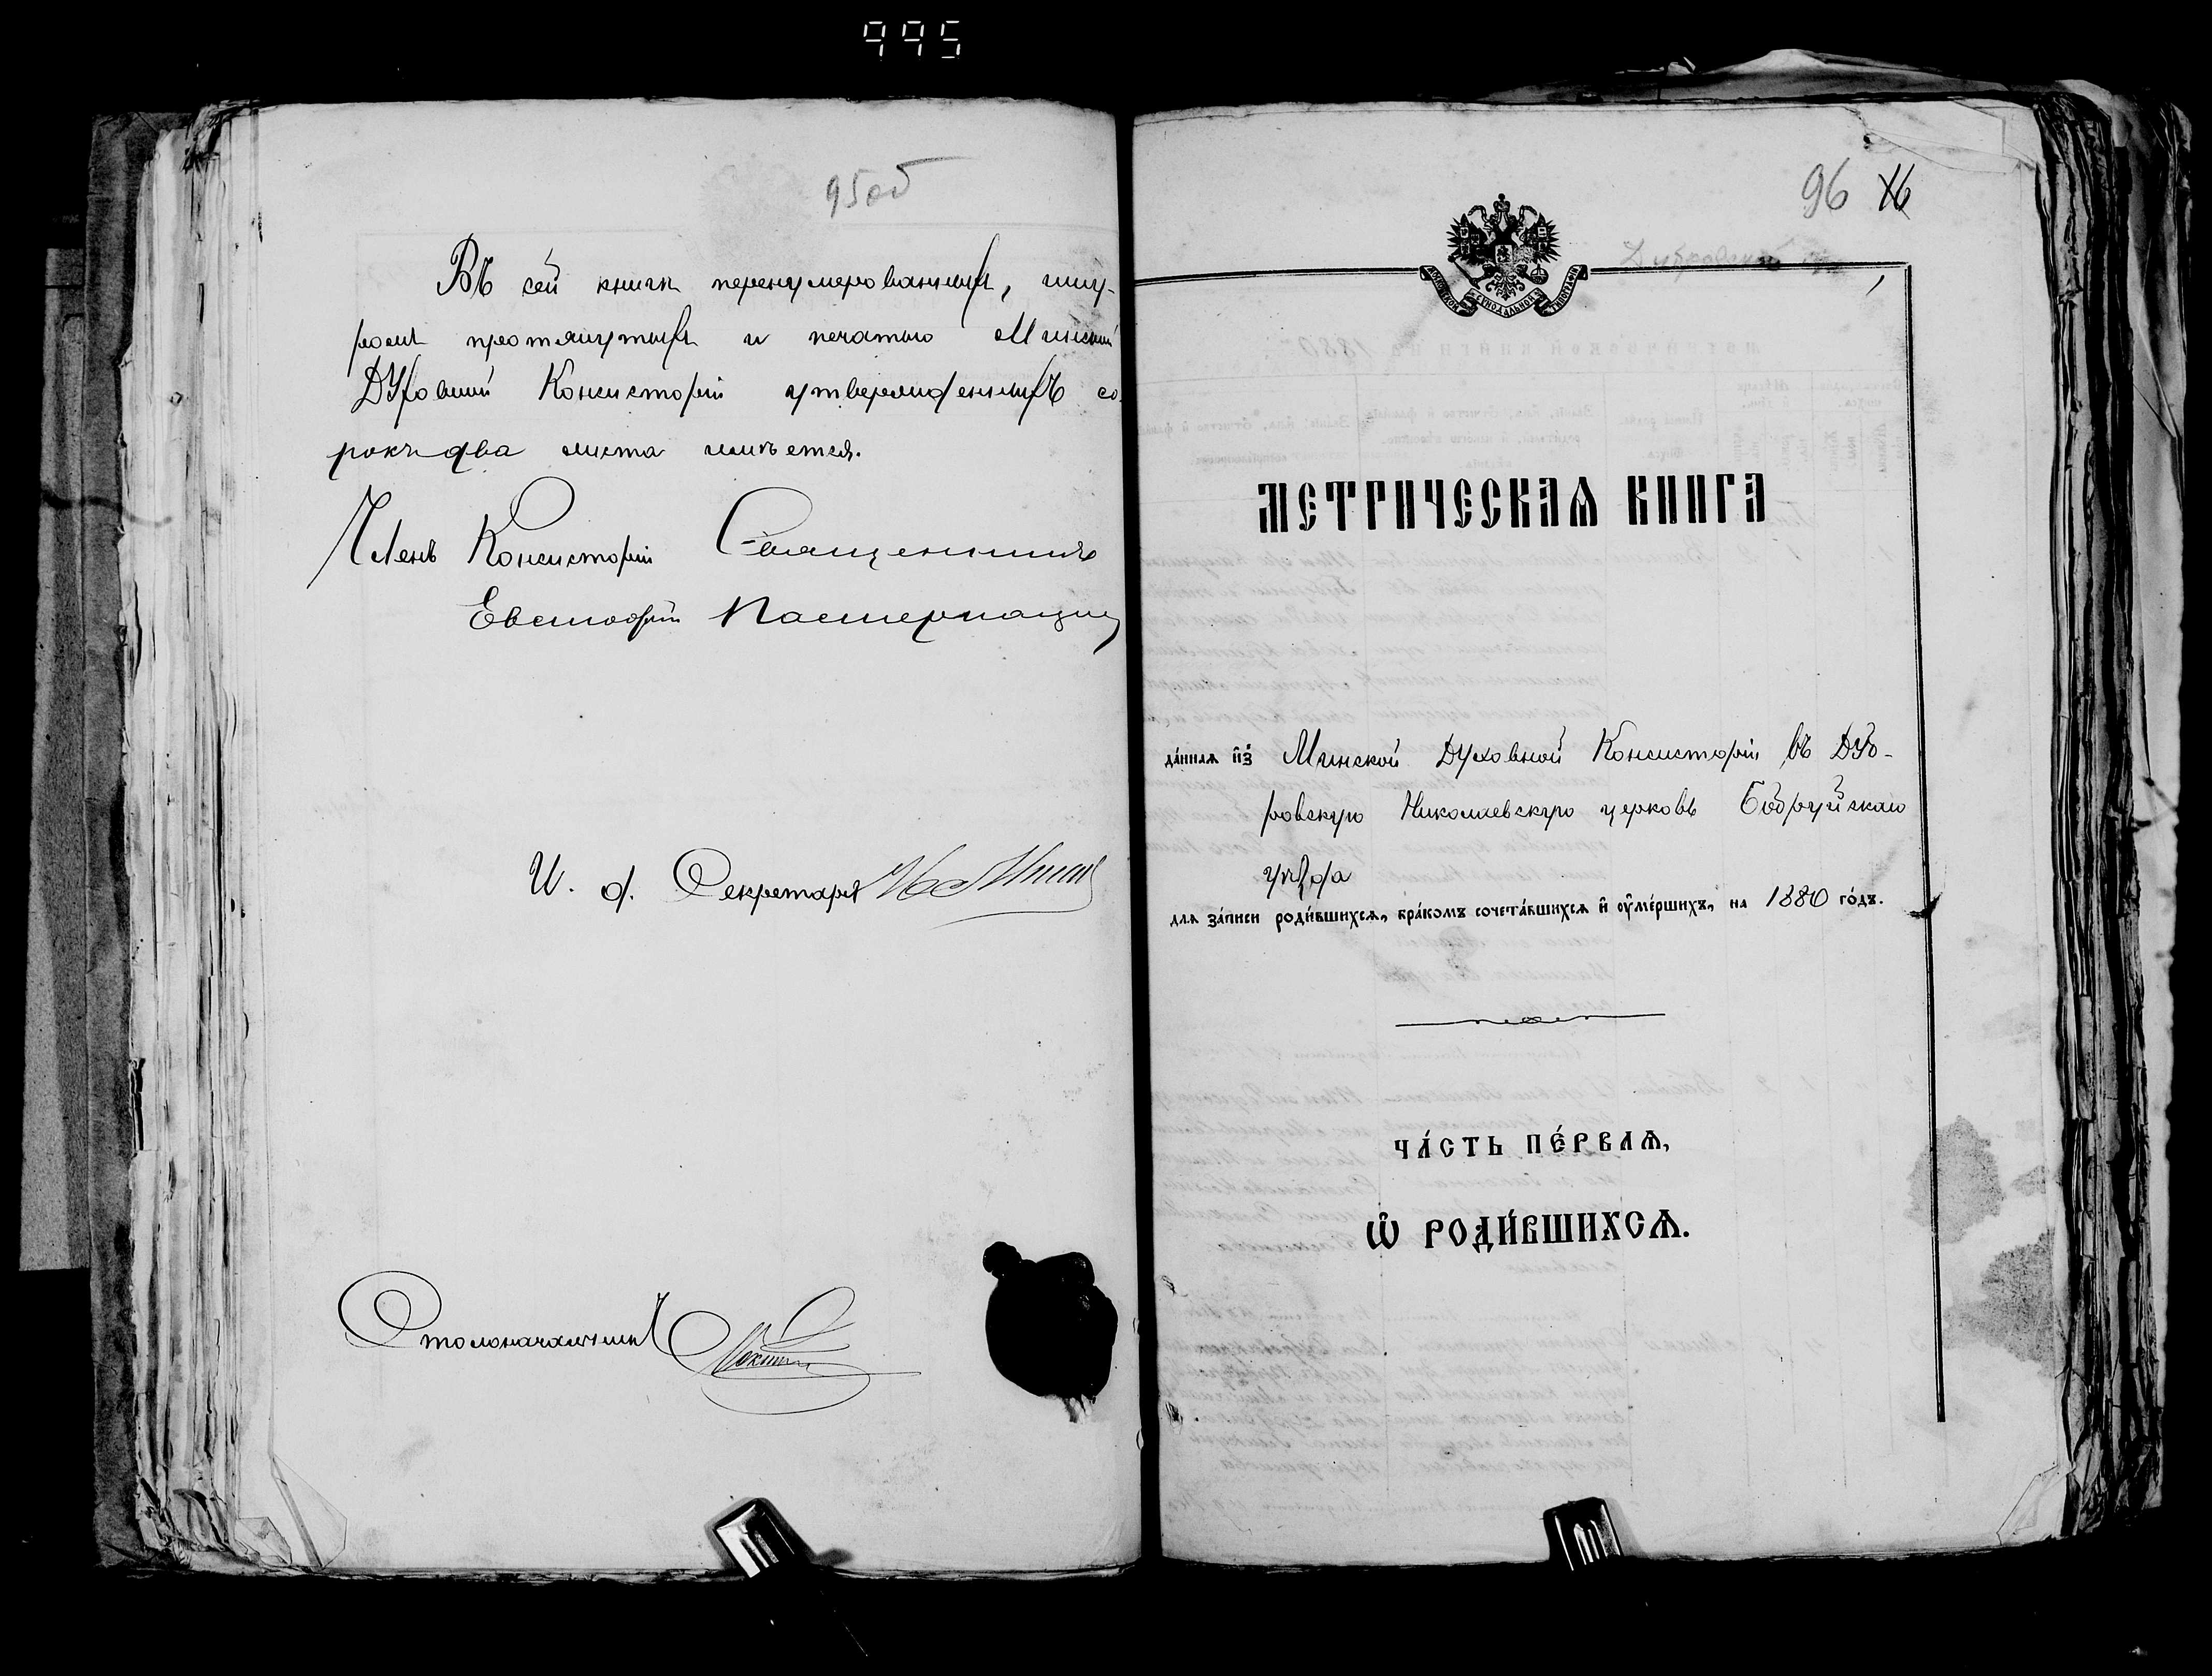 995
95об
Въ сей книгѣ перенумерованныхъ, шну-
ромъ протянутыхъ и печатью Минской
Духовной Консисторіи утвержденныхъ со-
рокъ два листа имѣется.
Членъ Консисторіи Священникъ
Евстафій
И. д. Секретаря
Столоначальникъ
96 16
Дубровской
МОСКОВСКОЙ СѴНОДАЛЬНОЙ ТИПОГРАФІИ
МЕТРИЧЕСКАЯ КНИГА
да́ннаѧ и҆з̾ Минской Духовной Консисторіи въ Дуб-
ровскую Николаевскую церковь Бобруйскаго
уѣзда
длѧ за́писи роди́вшихсѧ, бра́комъ сочета́вшихсѧ и҆ ᲂу҆ме́ршихъ, на 1880 го́дъ.
ЧА́СТЬ ПЕ́РВАѦ,
Ѽ РОДИ́ВШИХСѦ.